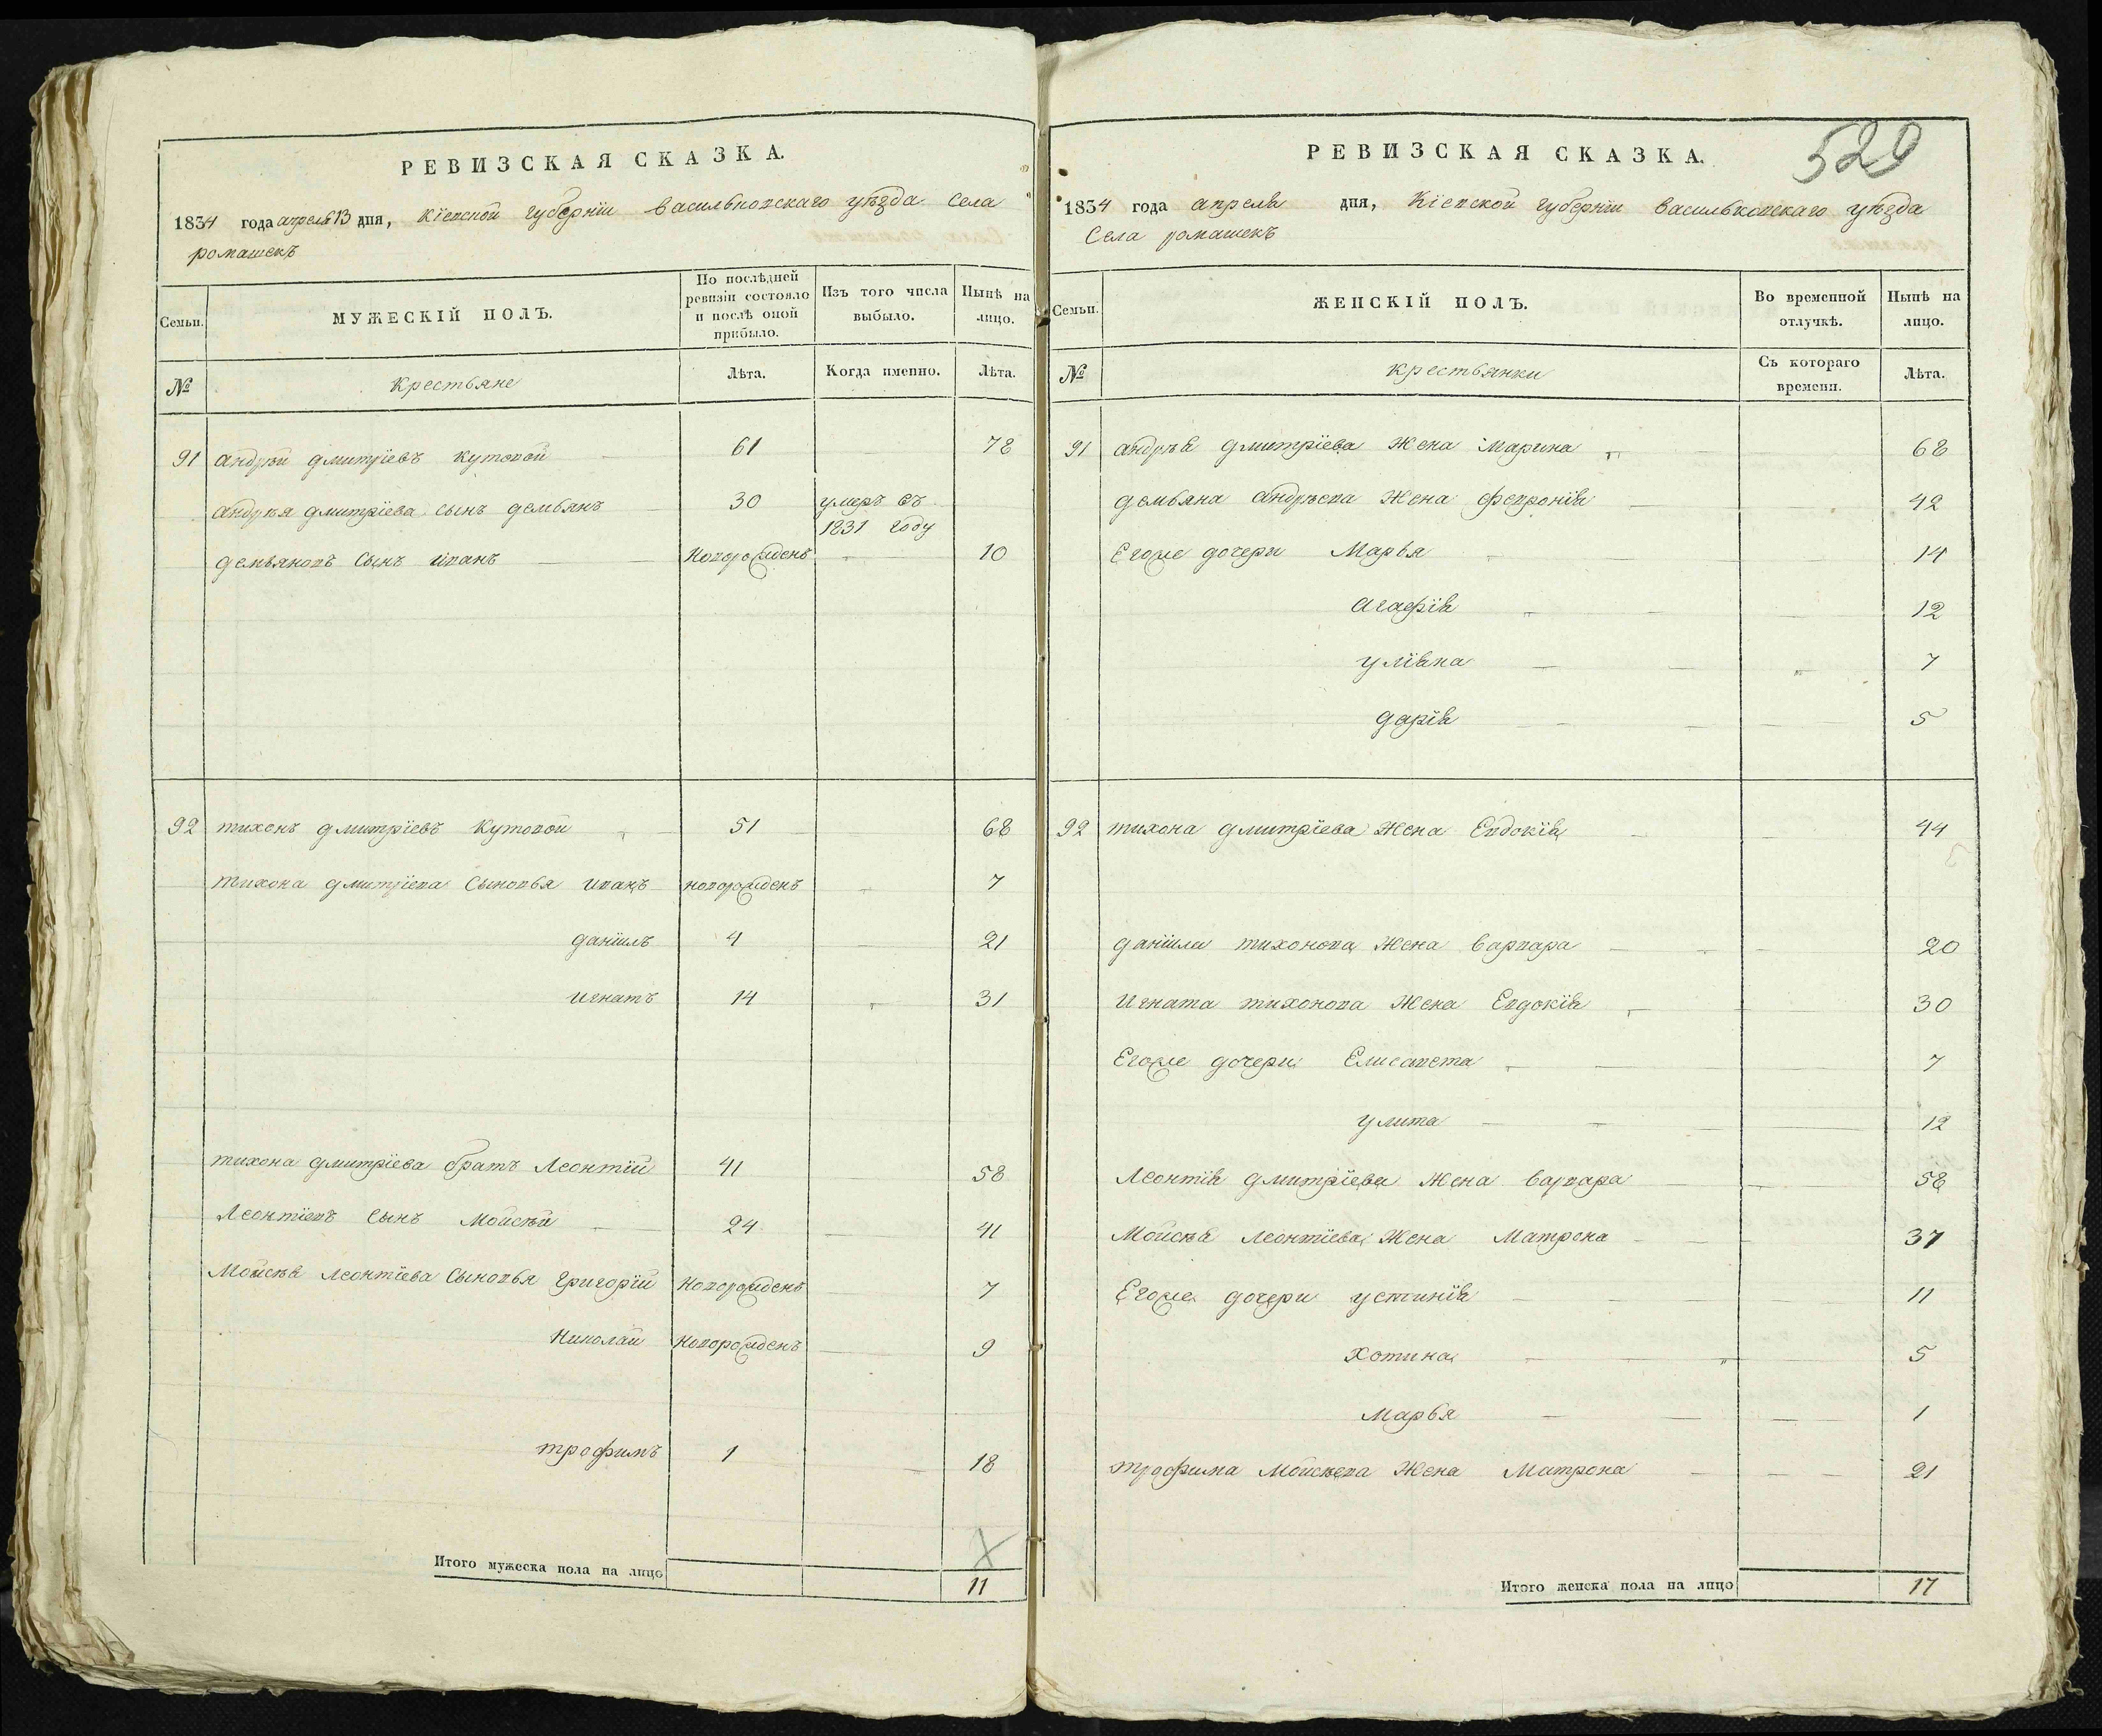 РЕВИЗСКАЯ СКАЗКА.
1834 года апреля 13 дня, Кіевской губерніи васильковскаго уѣзда села
ромашекъ
Семьи. МУЖЕСКІЙ ПОЛЪ. По послѣдней ревизіи состояло и послѣ оной прибыло. Изъ того числа выбыло. Нынѣ на лицо.
№ Крестьяне Лѣта. Когда именно. Лѣта.
91 андрѣй дмитріевъ кутовой 61 78
андрѣя дмитріева сынъ демьянъ 30 умеръ въ
1831 году
демьяновъ сынъ иванъ новорожденъ 10
92 тихонъ дмитріевъ кутовой 51 68
тихона дмитріева сыновья иванъ новорожденъ 7
даніилъ 4 21
игнатъ 14 31
тихона дмитріева братъ Леонтій 41 58
Леонтіевъ сынъ Мойсѣй 24 41
Мойсѣя леонтіева сыновья григорій новорожденъ 7
николай новорожденъ 9
трофимъ 1 18
Итого мужеска пола на лицо 11
529
РЕВИЗСКАЯ СКАЗКА.
1834 года апреля дня, Кіевской губерніи васильковскаго уѣзда
села ромашекъ
Семьи. ЖЕНСКІЙ ПОЛЪ. Во временной отлучкѣ. Нынѣ на лицо.
№ крестьянки Съ котораго времени. Лѣта.
91 андрѣя дмитріева жена Марина 68
демьяна андрѣева жена февронія 42
Егоже дочери Марья 14
агафія 12
уліяна 7
дарія 5
92 тихона дмитріева жена Евдокія 44
даніила тихонова жена варвара 20
игната тихонова жена Евдокія 30
Егоже дочери Елисавета 7
улита 12
Леонтія дмитріева жена варвара 58
Мойсѣя леонтіева жена Матрона 37
Егоже дочери устинія 11
Хотина 5
Марья 1
трофима Мойсѣева жена Матрона 21
Итого женска пола на лицо 17